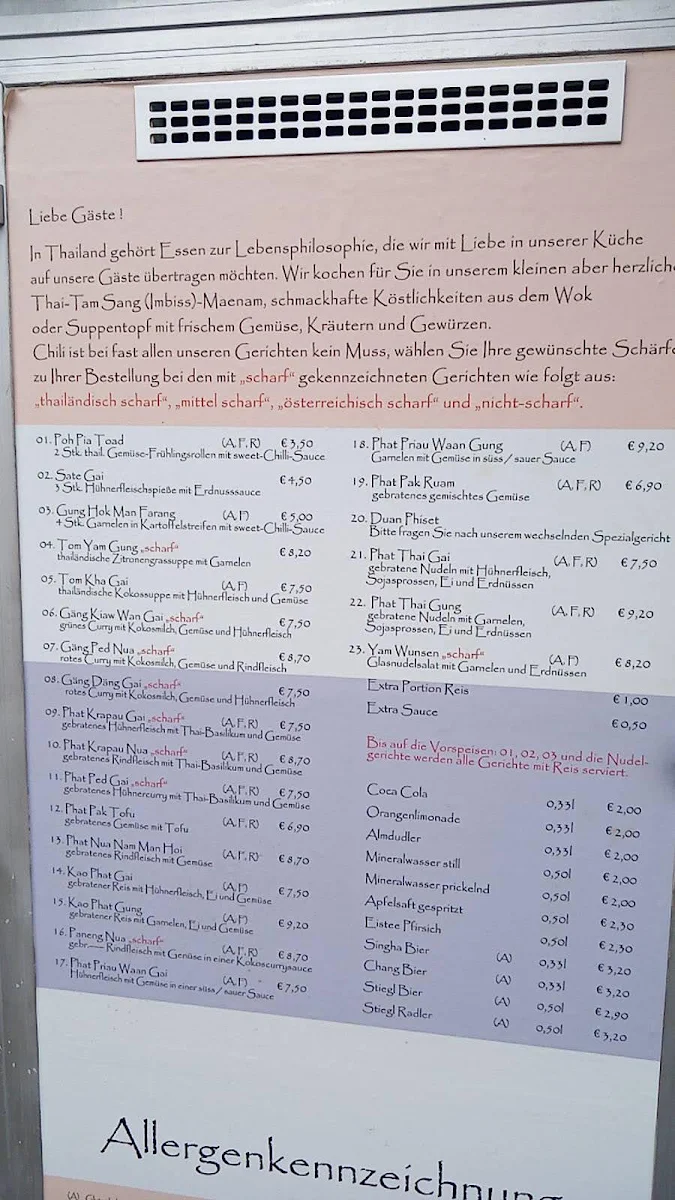 Liebe Gäste !
In Thailand gehört Essen zur Lebensphilosophie, die wir mit Liebe in unserer Küche
auf unsere Gäste übertragen möchten. Wir kochen für Sie in unserem kleinen aber herzliche
Thai-Tam Sang (Imbiss)-Maenam, schmackhafte Köstlichkeiten aus dem Wok
oder Suppentopf mit frischem Gemüse, Kräutern und Gewürzen.
Chili ist bei fast allen unseren Gerichten kein Muss, wählen Sie Ihre gewünschte Schärfe
zu Ihrer Bestellung bei den mit „scharf“ gekennzeichneten Gerichten wie folgt aus:
„thailändisch scharf“, „mittel scharf“, „österreichisch scharf“ und „nicht-scharf“.
01. Poh Pia Toad (A, F, R) € 3,50
2 Stk. thail. Gemüse-Frühlingsrollen mit sweet-Chilli-Sauce
02. Sate Gai € 4,50
3 Stk. Hühnerfleischspieße mit Erdnusssauce
03. Gung Hok Man Farang (A, F) € 5,00
4 Stk. Garnelen in Kartoffelstreifen mit sweet-Chilli-Sauce
04. Tom Yam Gung „scharf“ € 8,20
thailändische Zitronengrassuppe mit Garnelen
05. Tom Kha Gai (A, F) € 7,50
thailändische Kokossuppe mit Hühnerfleisch und Gemüse
06. Gäng Kiaw Wan Gai „scharf“ € 7,50
grünes Curry mit Kokosmilch, Gemüse und Hühnerfleisch
07. Gäng Ped Nua „scharf“ € 8,70
rotes Curry mit Kokosmilch, Gemüse und Rindfleisch
08. Gäng Däng Gai „scharf“ € 7,50
rotes Curry mit Kokosmilch, Gemüse und Hühnerfleisch
09. Phat Krapau Gai „scharf“ (A, F, R) € 7,50
gebratenes Hühnerfleisch mit Thai-Basilikum und Gemüse
10. Phat Krapau Nua „scharf“ (A, F, R) € 8,70
gebratenes Rindfleisch mit Thai-Basilikum und Gemüse
11. Phat Ped Gai „scharf“ (A, F, R) € 7,50
gebratenes Hühnercurry mit Thai-Basilikum und Gemüse
12. Phat Pak Tofu (A, F, R) € 6,90
gebratenes Gemüse mit Tofu
13. Phat Nua Nam Man Hoi (A, F, R) € 8,70
gebratenes Rindfleisch mit Gemüse
14. Kao Phat Gai (A, F) € 7,50
gebratener Reis mit Hühnerfleisch, Ei und Gemüse
15. Kao Phat Gung (A, F) € 9,20
gebratener Reis mit Garnelen, Ei und Gemüse
16. Paneng Nua „scharf“ (A, F, R) € 8,70
gebr. Rindfleisch mit Gemüse in einer Kokoscurrysauce
17. Phat Priau Waan Gai (A, F) € 7,50
Hühnerfleisch mit Gemüse in einer süss / sauer Sauce
18. Phat Priau Waan Gung (A, F) € 9,20
Garnelen mit Gemüse in süss / sauer Sauce
19. Phat Pak Ruam (A, F, R) € 6,90
gebratenes gemischtes Gemüse
20. Duan Phiset
Bitte fragen Sie nach unserem wechselnden Spezialgericht
21. Phat Thai Gai (A, F, R) € 7,50
gebratene Nudeln mit Hühnerfleisch,
Sojasprossen, Ei und Erdnüssen
22. Phat Thai Gung (A, F, R) € 9,20
gebratene Nudeln mit Garnelen,
Sojasprossen, Ei und Erdnüssen
23. Yam Wunsen „scharf“ (A, F) € 8,20
Glasnudelsalat mit Garnelen und Erdnüssen
Extra Portion Reis € 1,00
Extra Sauce € 0,50
Bis auf die Vorspeisen: 01, 02, 03 und die Nudel-
gerichte werden alle Gerichte mit Reis serviert.
Coca Cola 0,33l € 2,00
Orangenlimonade 0,33l € 2,00
Almdudler 0,33l € 2,00
Mineralwasser still 0,50l € 2,00
Mineralwasser prickelnd 0,50l € 2,00
Apfelsaft gespritzt 0,50l € 2,30
Eistee Pfirsich 0,50l € 2,30
Singha Bier (A) 0,33l € 3,20
Chang Bier (A) 0,33l € 3,20
Stiegl Bier (A) 0,50l € 2,90
Stiegl Radler (A) 0,50l € 3,20
Allergenkennzeichnung
(A)